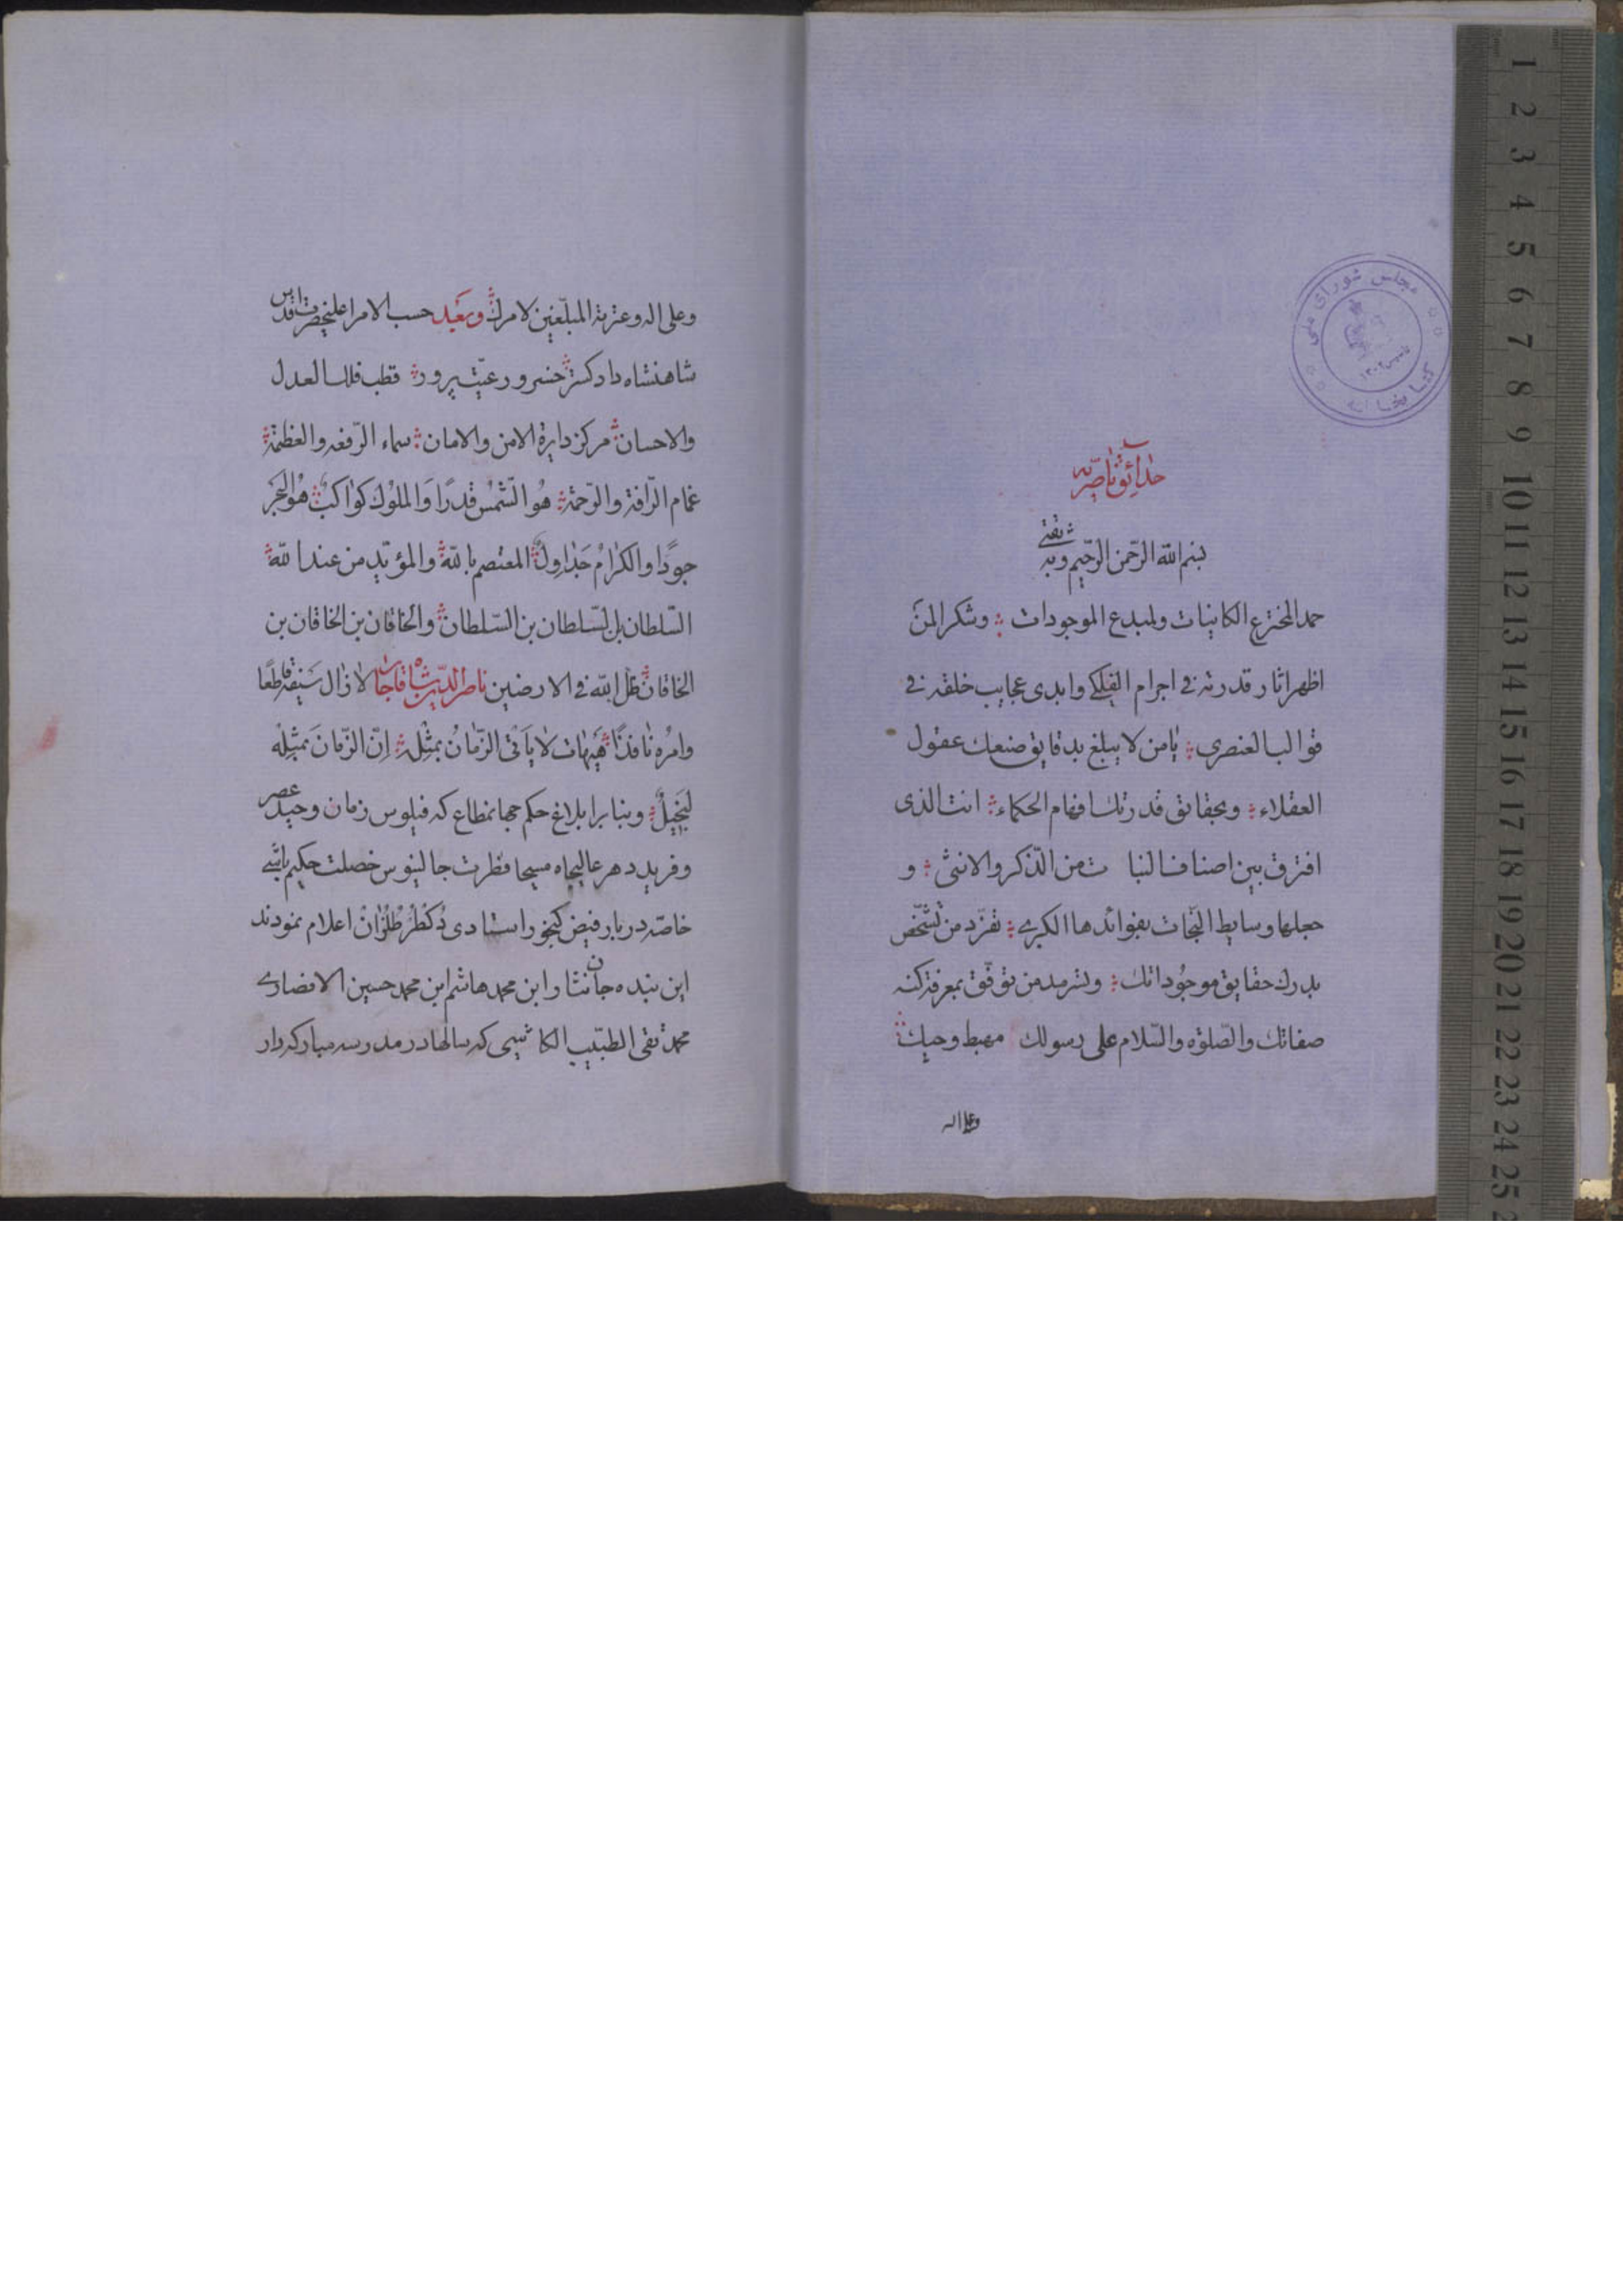 مجلس شورای ملی
کتابخانه
حدائق ناصریه
بسم الله الرّحمن الرّحیم وبه ثقتی
حمد المخترع الکاینات ولمبدع الموجودات وشکر المن
اظهر اثار قدرته فی اجرام الفلکے وابدی عجایب خلقه فی
قوالب العنصری یامن لا یبلغ بدقایق صنعك عقول
العقلاء وبحقائق قدرتك افهام الحکماء انت الذی
افترق بین اصناف النبات من الذّکر والانثی و
جعلها وسایط النجات بفوائدها الکبرے تفرّد من تشخّص
بدرك حقایق موجوداتك وتسرمد من توفّق بمعرفة کنه
صفاتك والصّلوة والسّلام علی رسولك مهبط وحیك
وعلی اله
وعلی اله وعترته المبلّغین لامرك وبعید حسب الامر اعلیحضرت اقدس
شاهنشاه دادکستر خسرو رعیّت پرور قطب فلك العدل
والاحسان مرکز دایرة الامن والامان سماء الرّفعه والعظمة
غمام الرّافة والرّحمة هُو الشّمسُ قدرًا وَالملوُك کواکبٌ هُو البَحر
جودًا والکرامُ جَداوِلٌ المعتصم بالله والمؤیّد من عند الله
السّلطان بن السّلطان بن السّلطان والخاقان بن الخاقان بن
الخاقان ظل الله فی الارضین ناصرالدّین شاه قاجار لازال سَیفه قاطعًا
وامرُه نافذًا هَیهات لا یَأتی الزّمانُ بمثِله اِنّ الزّمانَ بمثِلِه
لبَخیلٌ وبنابر ابلاغ حکم جهانمطاع که فیلوس زمان وحید عصر
وفرید دهر عالیجاه مسیحا فطرت جالینوس خصلت حکیم باشے
خاصّه دربار فیض کنجور استادی دُکطُر طُلُزان اعلام نمودند
این بنده جان نثار ابن محمد هاشم ابن محمد حسین الانصارے
محمد تقی الطبیب الکاشی که سالها در مدرسه مبارکه دار